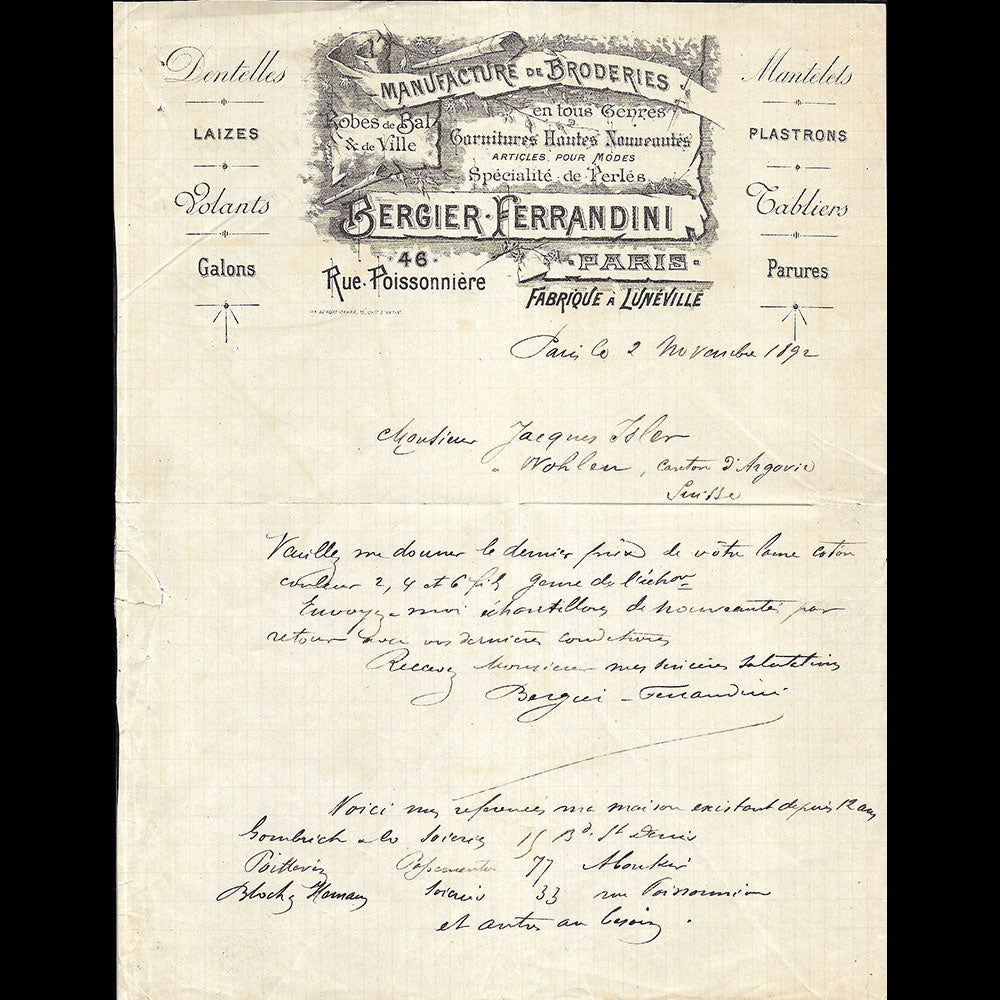 Dentelles
LAIZES
Volants
Galons
MANUFACTURE DE BRODERIES
en tous Genres
Robes de Bal
& de Ville
Garnitures Hautes Nouveautés
ARTICLES POUR MODES
Spécialité de Perlés
BERGIER-FERRANDINI
46
Rue Poissonnière
PARIS
FABRIQUE A LUNÉVILLE
Mantelets
PLASTRONS
Tabliers
Parures
Paris le 2 Novembre 1892
Monsieur Jacques Isler
Wohlen, canton d'Argovie
Suisse
Veuillez me donner le dernier prix de votre lame coton
couleur 2, 4 et 6 fils genre de l'échon
Envoyez-moi échantillons de nouveautés par
retour avec vos dernières conditions
Recevez Monsieur mes sincères salutations
Bergier-Ferrandini
Voici mes references ma maison existant depuis 12 ans
Gombrich & Co Soieries 15 Bd St Denis
Poittevin Passementier 77 Aboukir
Bloch & Haman Soieries 33 rue Poissonnière
et autres au besoin.